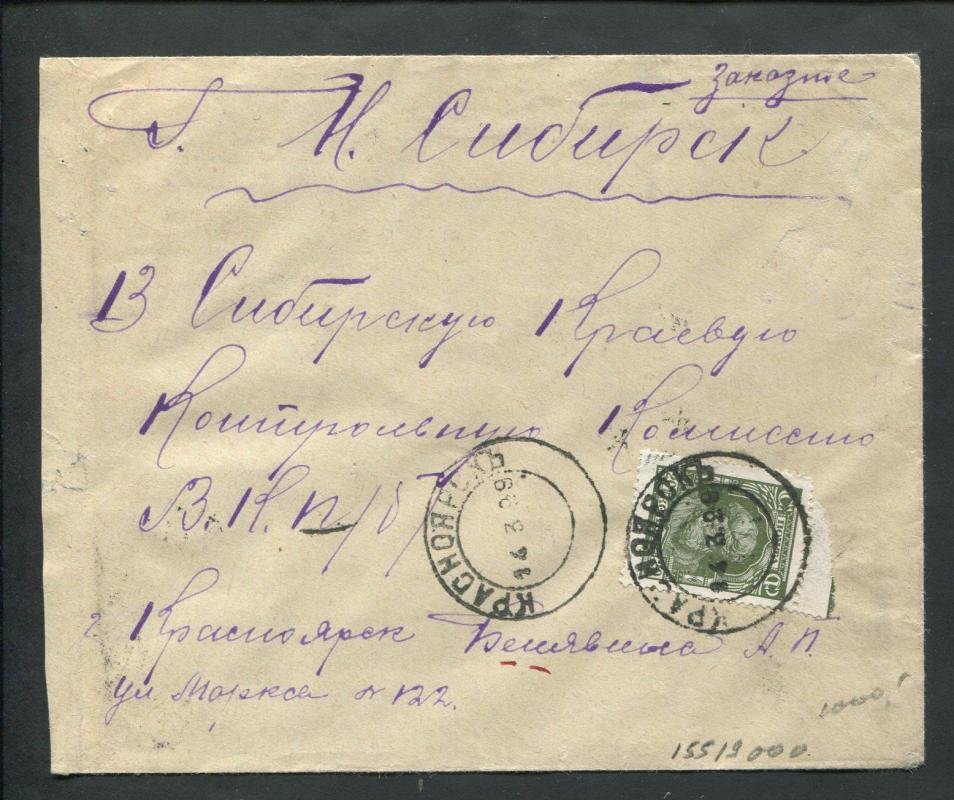 Заказное
г. Н. Сибирск
В Сибирскую Краевую
Контрольную Комиссию
В.К.П/б/
КРАСНОЯРСКЪ
КРАСНОЯРСКЪ
г Красноярск А.П.
ул Маркса № 122.
1000
155/9000